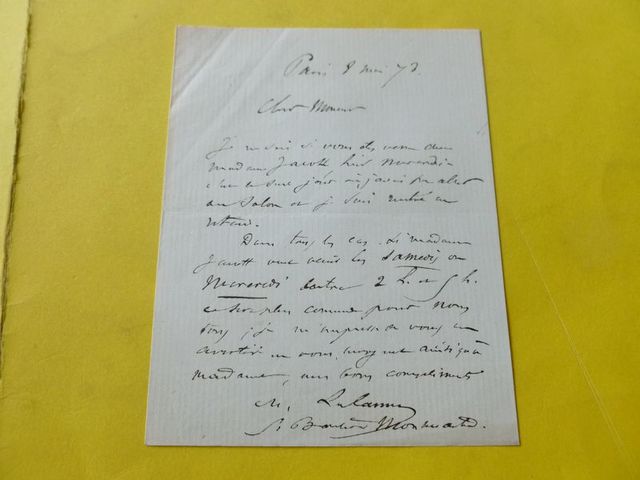 Paris 8 mai 73.
Cher Monsieur
Je ne sais si vous êtes venu avec
madame Jacott hier Mercredi
c'est le seul jour où j'avais pu aller
au Salon et je suis rentré en
retard.
Dans tous les cas. Si madame
Jacott veut venir les Samedis ou
Mercredi entre 2 h. et 5 h.
ce sera plus commode pour nous
tous, je m'empresse de vous en
avertir en vous envoyant ainsi qu'à
madame, mes bons compliments
M. Lalanne
Boulevard Montmartre.